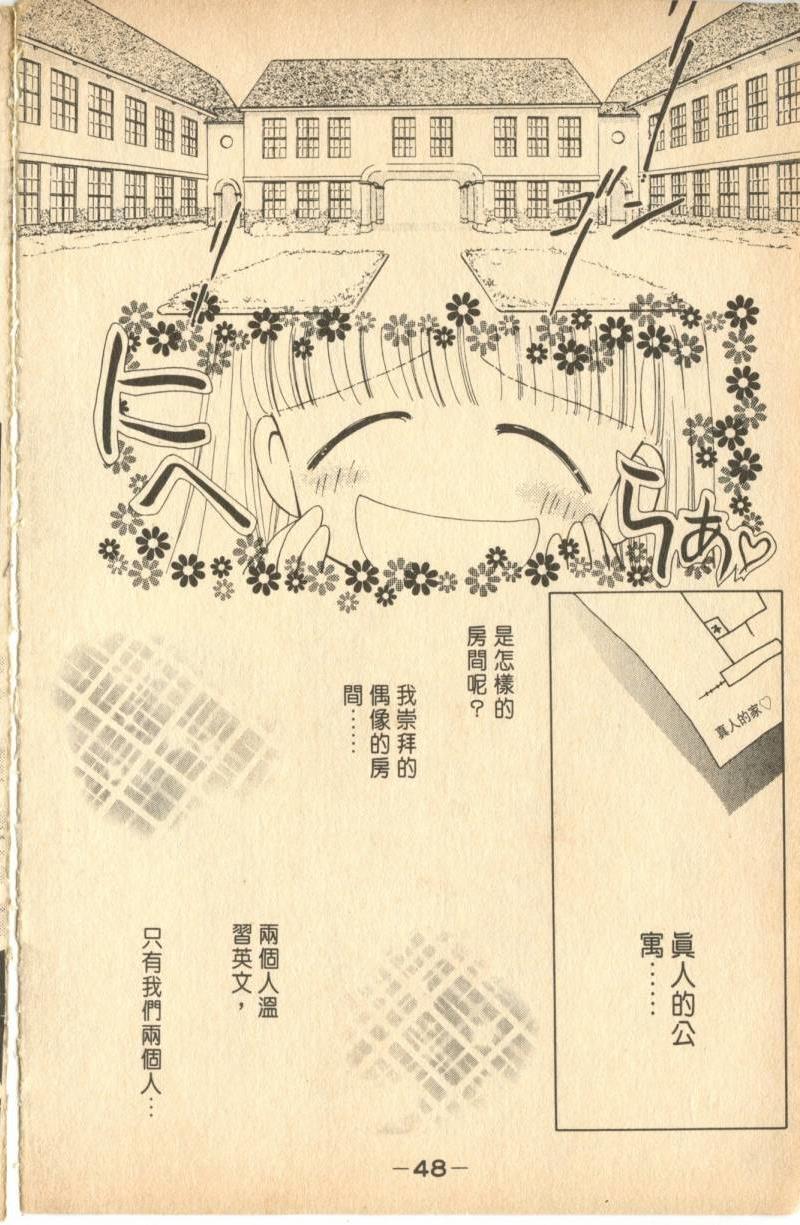 ゴーン
にへ
らぁ♡
真人的家♡
眞人的公
寓……
是怎樣的
房間呢？
我崇拜的
偶像的房
間……
兩個人溫
習英文，
只有我們兩個人…
－48－